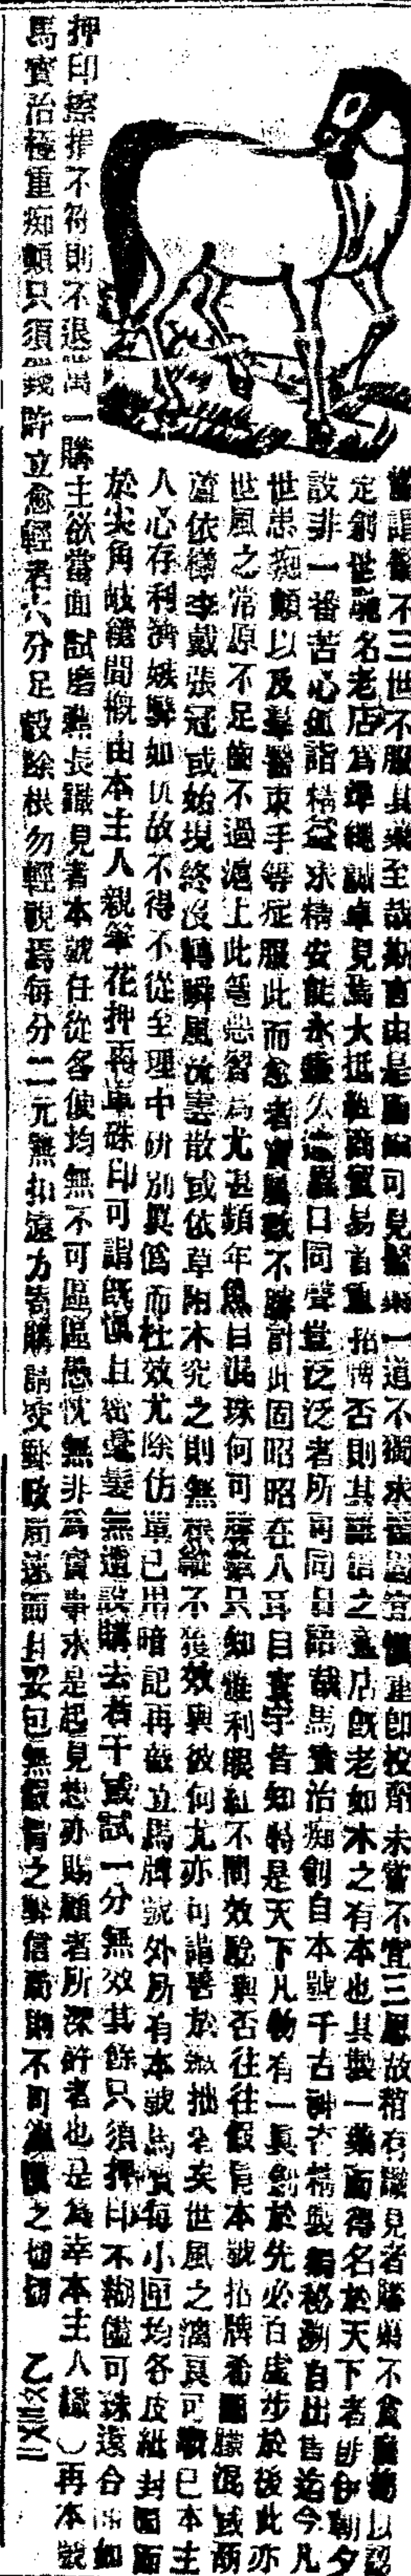 醫不三世不服其藥至哉斯言由是可見醫藥一道不獨求醫宜慎重即投劑未嘗不宜三思故稍有識見者購藥不貪以認
定創世馳名老店為準繩誠卓見焉大抵商賈貿易首重招牌否則其誰信之蓋店既老如木之有本也其製一藥而得名於天下者非伊朝夕
設非一番苦心孤詣精益求精安能永垂久遠異口同聲豈泛泛者所可同日語哉馬寶治痴創自本號千古神方精製獨秘溯自出售迄今凡
世患痴顛以及羣醫束手等症服此而愈者實屬數不勝計此固昭昭在人耳目寰宇皆知特是天下凡物有一真創於先必百虛步於後此亦
世風之常原不足怪不過滬上此等惡習為尤甚頻年魚目混珠何可只知惟利眼紅不問效驗與否往往假冒本號招牌希圖朦混或葫
蘆依樣李戴張冠或始現終沒轉瞬風流雲散或依草附木究之則無根蒂不獲效與彼何尤亦可謂善於藏拙者矣世風之漓良可歎已本主
人心存利濟嫉弊如仇故不得不從至理中研別真偽而杜效尤除仿單已用暗記再設立馬牌號外所有本號馬寶每小匣均各皮紙封固而
於尖角岐縫間概由本主人親筆花押再蓋硃印可謂既慎且密毫髮無遺設購去若干或試一分無效其餘只須押印不糊儘可珠還合浦如
押印擦損不符則不退萬一購主欲當面試磨驗長識見者本號任從客便均無不可區區愚忱無非為實事求是起見想亦賜顧者所深許者也是為幸本主人識）再本號
馬寶治極重痴顛只須錢許立愈輕者六分足殼除根勿輕視焉每分二元無扣遠方寄購請交郵政局速而且妥包無假冒之弊信局則不可之切切　乙〤〣〤〢